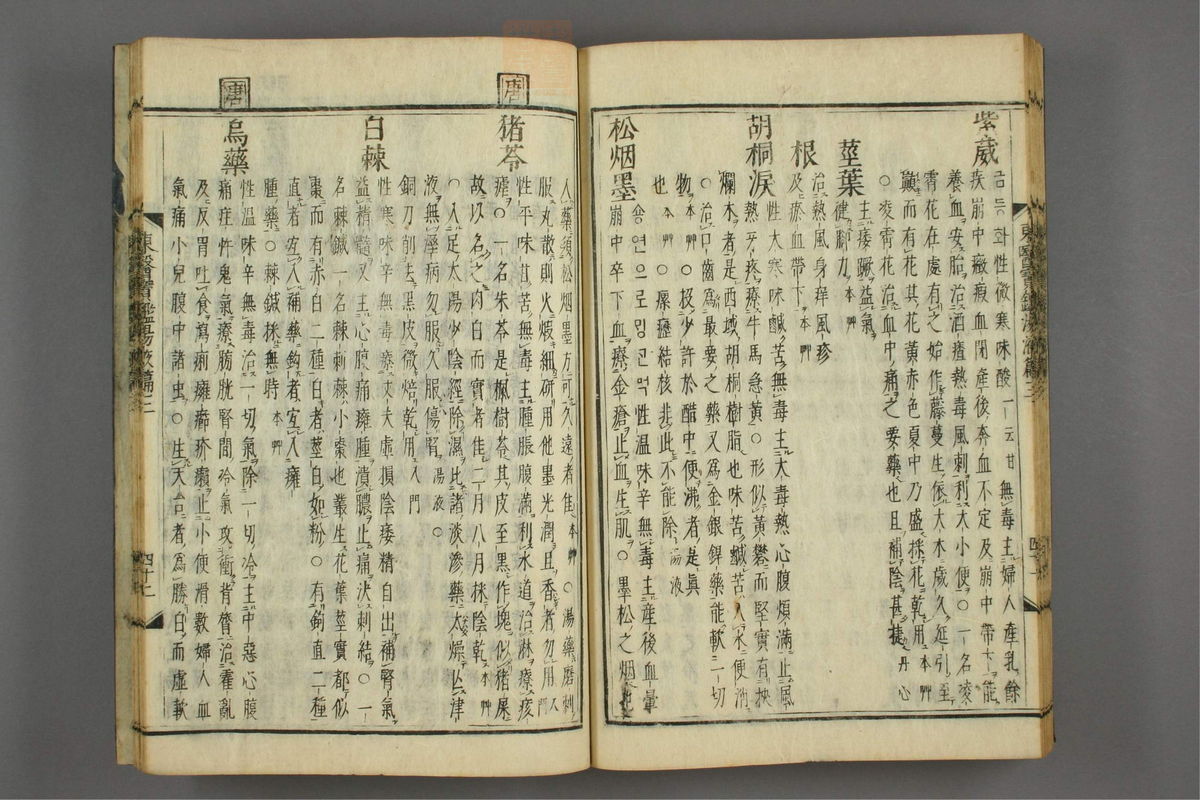 紫葳 금등화性微寒味酸一云甘無毒主婦人產乳餘
疾崩中癥瘕血閉產後奔血不定及崩中帶下能
養血安胎治酒齄熱毒風刺利大小便○一名凌
霄花在處有之始作藤蔓生依大木歲久延引至
巔而有花其花黃赤色夏中乃盛採花乾用本艸
○凌霄花治血中痛之要藥也且補陰甚捷丹心
莖葉 主痿躄益氣
健脚力本艸
根 治熱風身痒風疹
及瘀血帶下本艸
胡桐淚 性大寒味鹹苦無毒主大毒熱心腹煩滿止風
熱牙疼療牛馬急黃○形似黃礬而堅實有挾
爛木者是西域胡桐樹脂也味苦鹹苦入水便消
○治口齒爲最要之藥又爲金銀銲藥能軟一切
物本艸○投少許於醋中便沸者是眞
也本艸○瘰癧結核非此不能除湯液
松烟墨 숑연으로밍근먹性溫味辛無毒主產後血暈
崩中卒下血療金瘡止血生肌○墨松之烟也
入藥須松烟墨方可久遠者佳本艸○湯藥磨刺
服丸散則火煆細研用他墨光潤且香者勿用入門
唐
猪苓 性平味甘苦無毒主腫脹腹滿利水道治淋療痎
瘧○一名朱苓是楓樹苓其皮至黑作塊似猪屎
故以名之肉白而實者佳二月八月採陰乾本艸
○入足太陽少陰經除濕比諸淡滲藥太燥亡津
液無濕病勿服久服傷腎湯液○
銅刀削去黑皮微焙乾用入門
白棘 性寒味辛無毒療丈夫虛損陰痿精自出補腎氣
益精髓又主心腹痛癰腫潰膿止痛決刺結○一
名棘鍼一名棘刺棘小棗也叢生花葉莖實都似
棗而有赤白二種白者莖白如粉○有鉤直二種
直者宜入補藥鉤者宜入癰
腫藥○棘鍼採無時本艸
唐
烏藥 性溫味辛無毒治一切氣除一切冷主中惡心腹
痛疰忤鬼氣療膀胱腎間冷氣攻衝背膂治霍亂
及反胃吐食瀉痢癰癤疥癩止小便滑數婦人血
氣痛小兒腹中諸虫○生天台者爲勝白而虛軟
東醫寶鑑湯液篇三
四十二